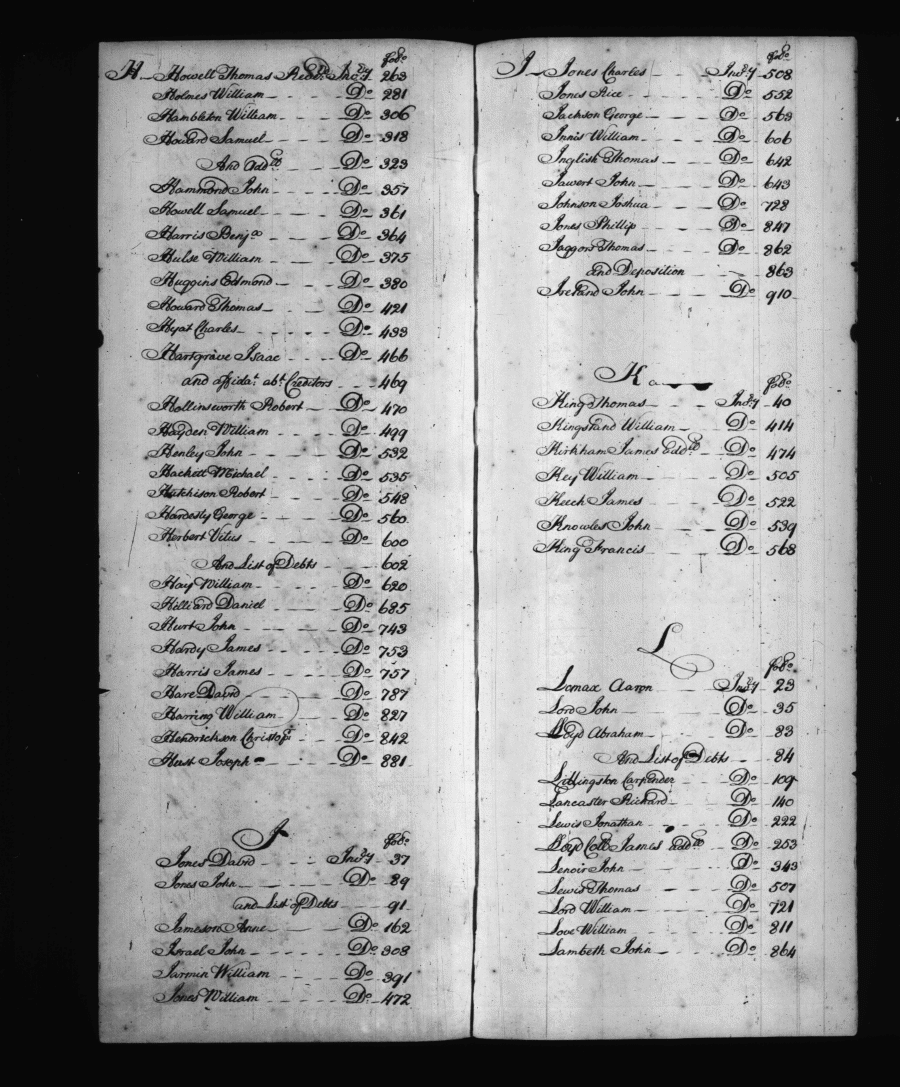 fo:
H - Howell Thomas Read: Inv:y 263
Holmes William Do 281
Hambleton William Do 306
Howard Samuel Do 318
And add:l 323
Hammond John Do 357
Howell Samuel Do 361
Harris Benja Do 364
Hulse William Do 375
Huggins Edmond Do 380
Howard Thomas Do 421
Hyat Charles Do 433
Hartgrave Isaac Do 466
and affidat. abt. Creditors 469
Hollinsworth Robert Do 470
Hayden William Do 499
Henley John Do 532
Hackett Michael Do 535
Hutchison Robert Do 548
Hardesty George Do 560
Herbert Vitus Do 600
And List of Debts 602
Hay William Do 620
Hilliard Daniel Do 685
Hurt John Do 743
Hardy James Do 753
Harris James Do 757
Hare David Do 787
Harring William Do 827
Hendrickson Christopr Do 842
Hust Joseph Do 881
J
fo:
Jones David Inv:y 37
Jones John Do 89
and List of Debts 91
Jameson Anne Do 162
Israel John Do 308
Jarmin William Do 391
Jones William Do 472
fo:
J - Jones Charles Inv:y 508
Jones Rice Do 552
Jackson George Do 563
Innis William Do 606
Inglish Thomas Do 642
Jawert John Do 643
Johnson Joshua Do 728
Jones Phillip Do 847
Jaggord Thomas Do 862
and Deposition 863
Ireland John Do 910
K
fo:
King Thomas Inv:y 40
Kingsland William Do 414
Kirkham James add:l Do 474
Key William Do 505
Keech James Do 522
Knowles John Do 539
King Francis Do 568
L
fo:
Lomax Aaron Inv:y 23
Lord John Do 35
Lloyd Abraham Do 83
And List of Debts 84
Lillingston Carpender Do 109
Lancaster Richard Do 140
Lewis Jonathan Do 222
Lloyd Coll James add:l Do 253
Lenoir John Do 343
Lewis Thomas Do 507
Lord William Do 721
Love William Do 811
Lambeth John Do 864